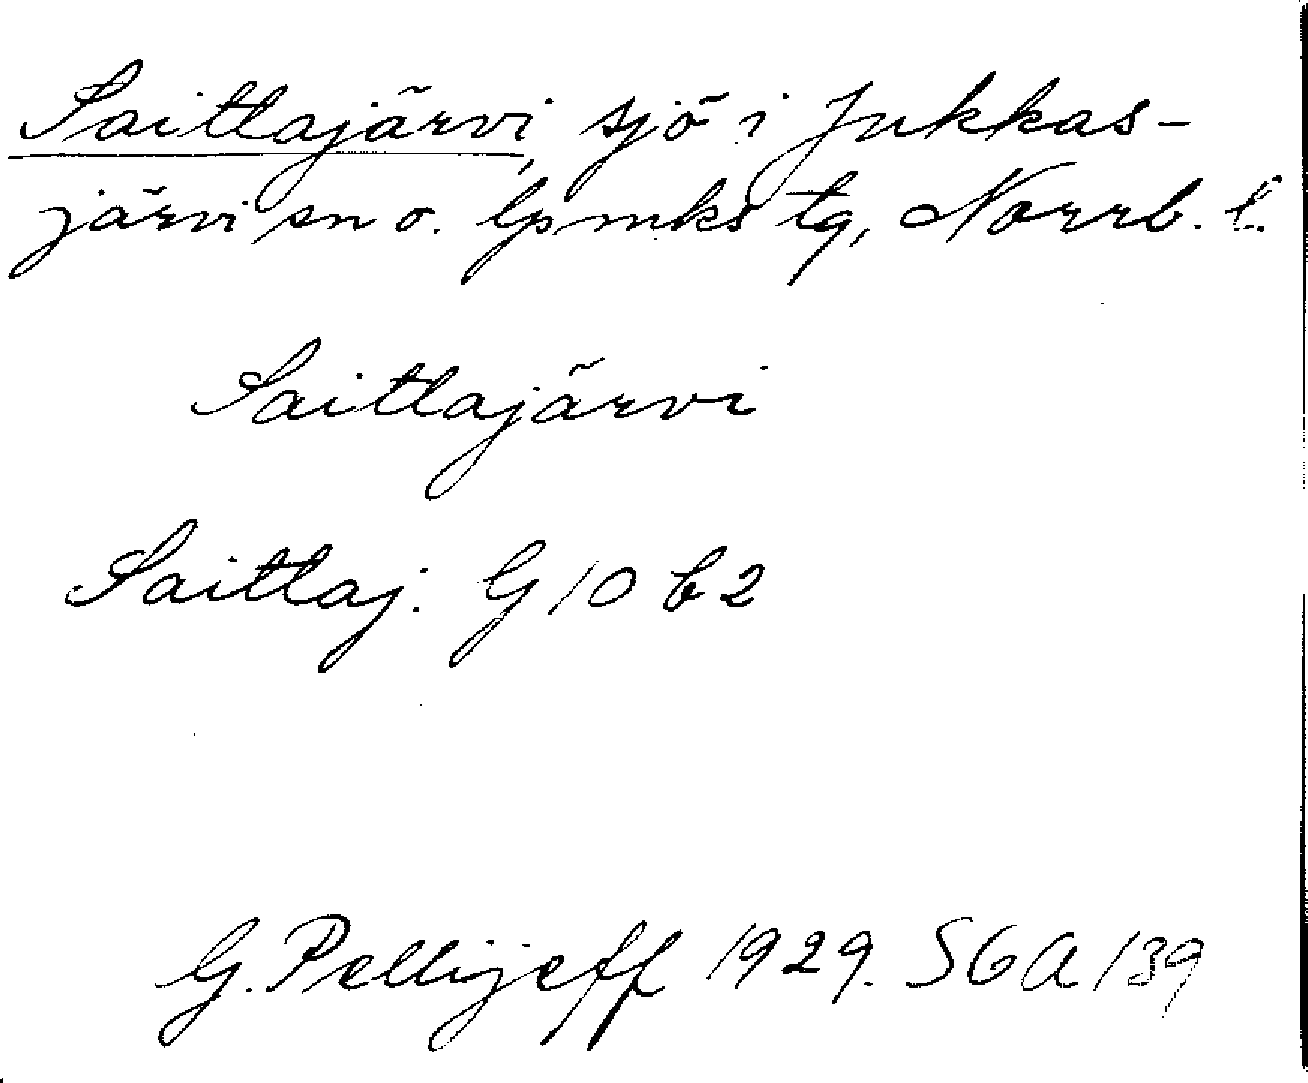 Saittajärvi, sjö i Jukkas-
järvi sn o. lpmks tg, Norrb. l.
Saittajärvi
Saittaj. G 10 b 2
G. Pellijeff 1929. SGA 139